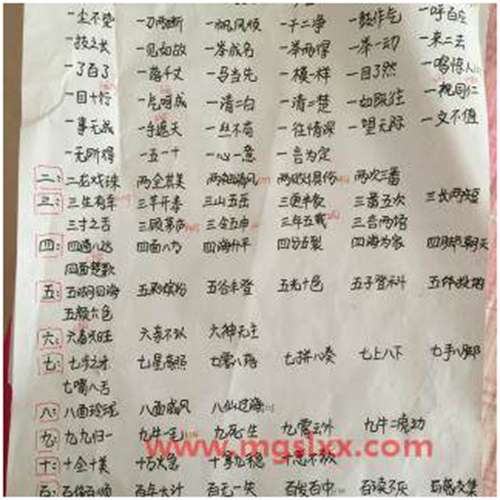 一尘不染 一刀两断 一帆风顺 一干二净 一鼓作气 一呼百应
一技之长 一见如故 一举成名 一举两得 一举一动 一来二去
一了百了 一落千丈 一马当先 一模一样 一目了然 一鸣惊人
一目十行 一气呵成 一清二白 一清二楚 一如既往 一视同仁
一事无成 一手遮天 一丝不苟 一往情深 一望无际 一文不值
一无所得 一五一十 一心一意 一言为定
二: 二龙戏珠 两全其美 两袖清风 两败俱伤 两次三番
三: 三生有幸 三羊开泰 三山五岳 三更半夜 三番五次 三长两短
三寸之舌 三顾茅庐 三令五申 三年五载 三言两语
四: 四通八达 四面八方 四海升平 四分五裂 四海为家 四脚朝天
四面楚歌
五: 五湖四海 五彩缤纷 五谷丰登 五光十色 五子登科 五体投地
五颜六色
六: 六畜兴旺 六亲不认 六神无主
七: 七步之才 七星高照 七零八落 七拼八凑 七上八下 七手八脚
七嘴八舌
八: 八面玲珑 八面威风 八仙过海
九: 九九归一 九牛一毛 九死一生 九霄云外 九牛二虎功
www.mgslxx.com
十: 十全十美 十万火急 十拿九稳 十恶不赦
百: 百依百顺 百年大计 百无一失 百发百中 百读不厌